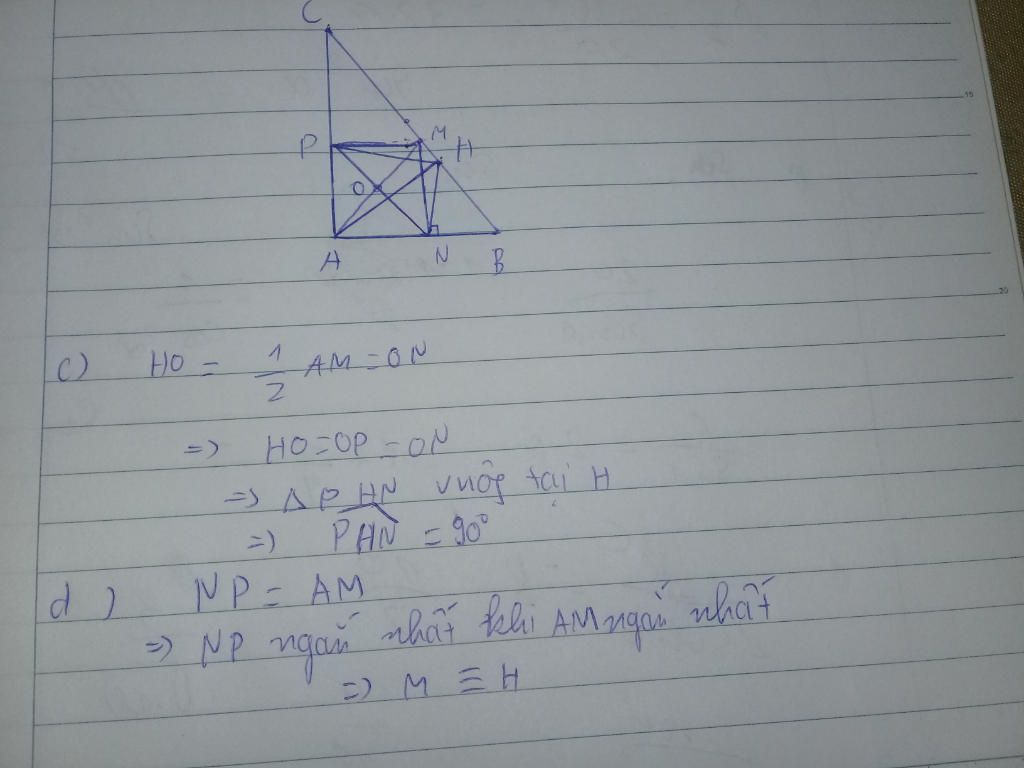 C
P
M
H
O
A
N
B
15
20
c) HO = 1/2 AM = ON
=> HO = OP = ON
=> Δ PHN vuôg tại H
=> PHN = 90°
d) NP = AM
=> NP ngắn nhất khi AM ngắn nhất
=> M ≡ H